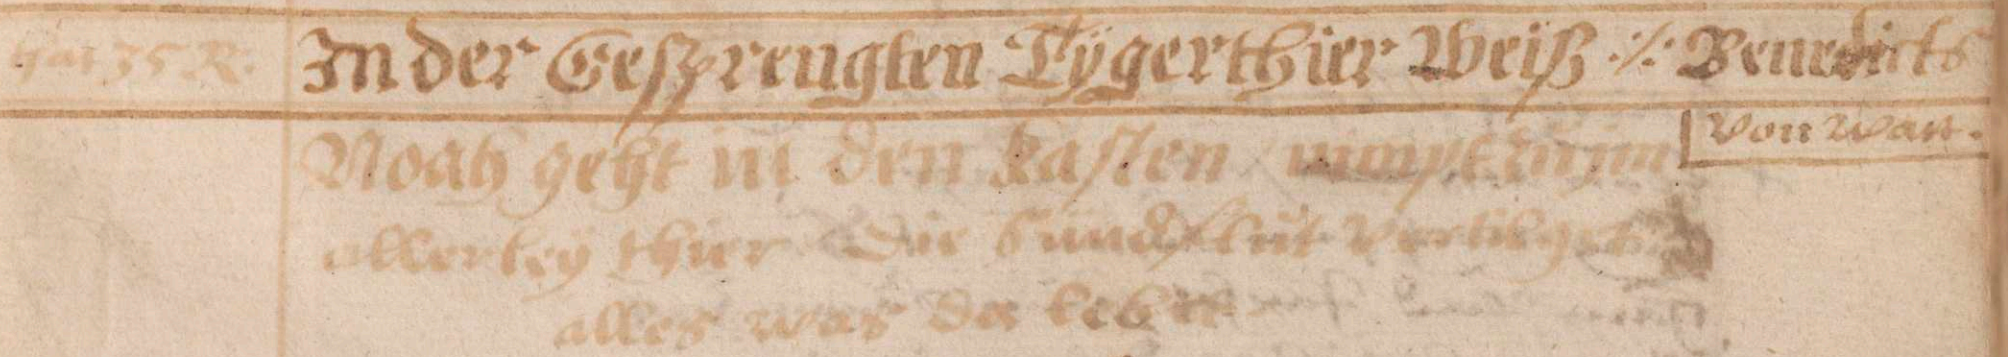 hat 35 R.
In der Gesprengten Tÿgerthier Weiß ·/· Benedicts
Von Watt.
Noah geht in den Kasten nimpt zu im
allerleÿ thier Die Sündflut vertilget
alles was da lebet